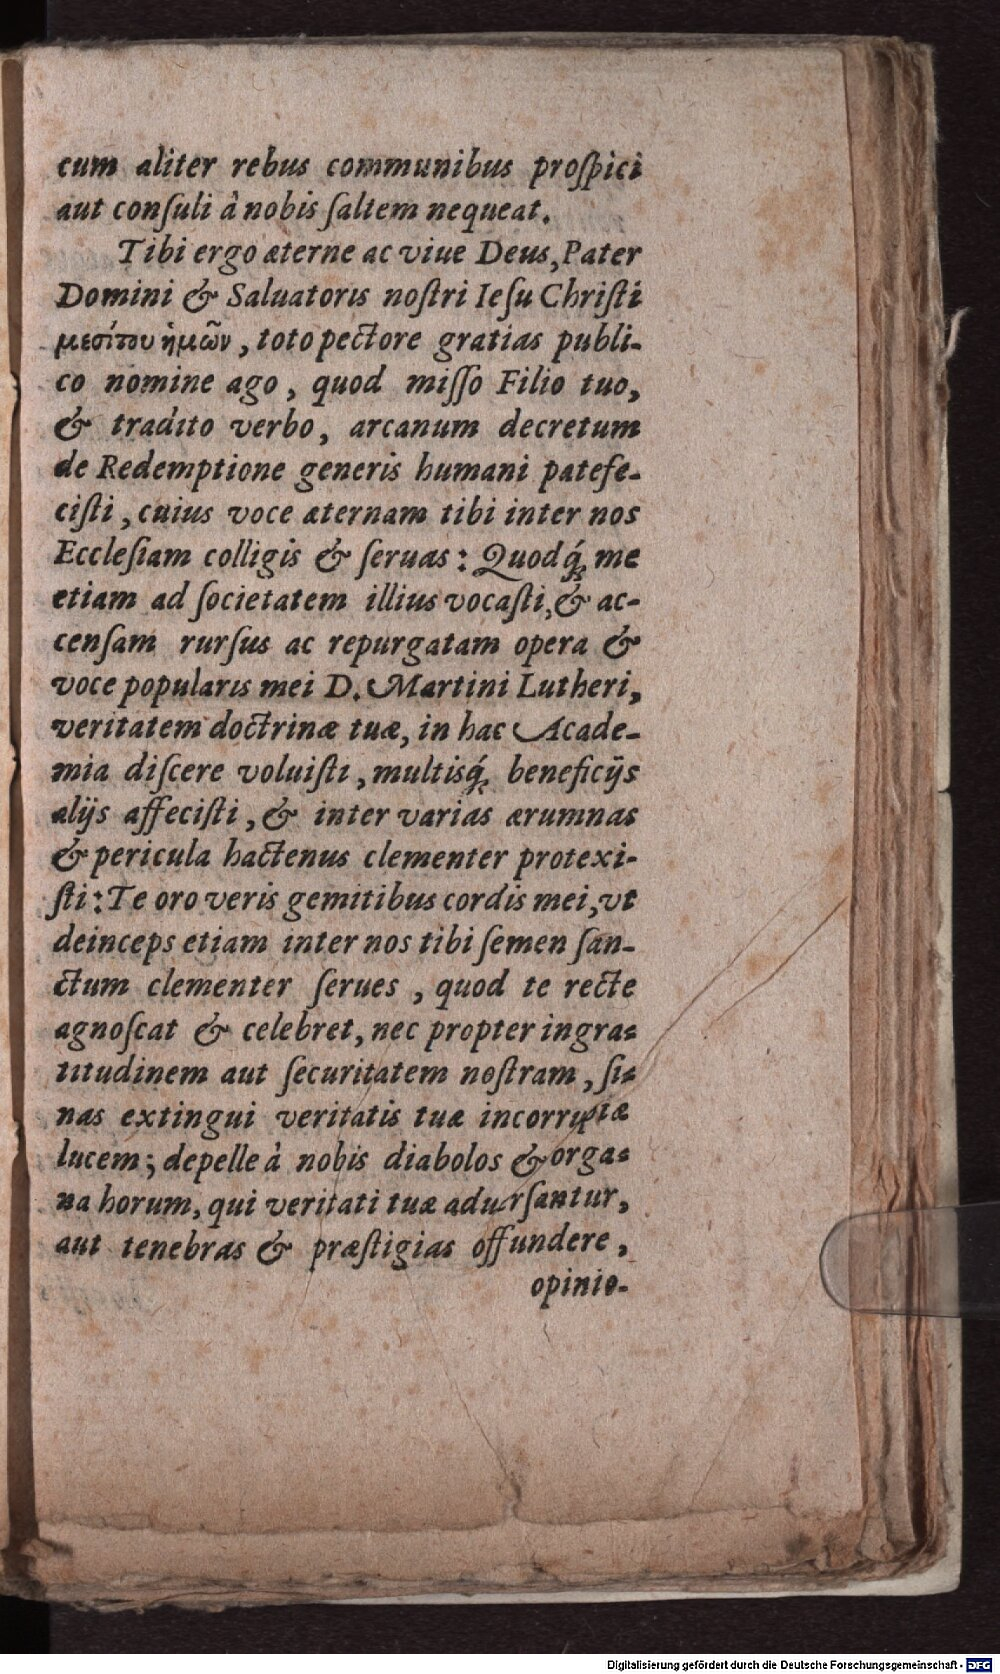 cum aliter rebus communibus proſpici
aut conſuli à nobis ſaltem nequeat.
Tibi ergo æterne ac viue Deus, Pater
Domini & Saluatoris noſtri Ieſu Chriſti
μεσίτου ἡμῶν, toto pectore gratias publi-
co nomine ago, quod miſſo Filio tuo,
& tradito verbo, arcanum decretum
de Redemptione generis humani patefe-
ciſti, cuius voce æternam tibi inter nos
Eccleſiam colligis & ſeruas: Quodq́; me
etiam ad ſocietatem illius vocaſti, & ac-
cenſam rurſus ac repurgatam opera &
voce popularis mei D. Martini Lutheri,
veritatem doctrinæ tuæ, in hac Acade-
mia diſcere voluiſti, multisq́; beneficijs
alijs affeciſti, & inter varias ærumnas
& pericula hactenus clementer protexi-
ſti: Te oro veris gemitibus cordis mei, vt
deinceps etiam inter nos tibi ſemen ſan-
ctum clementer ſerues, quod te recte
agnoſcat & celebret, nec propter ingra-
titudinem aut ſecuritatem noſtram, ſi-
nas extingui veritatis tuæ incorruptæ
lucem; depelle à nobis diabolos & orga-
na horum, qui veritati tuæ aduerſantur,
aut tenebras & præſtigias offundere,
opinio-
Digitalisierung gefördert durch die Deutsche Forschungsgemeinschaft - DFG